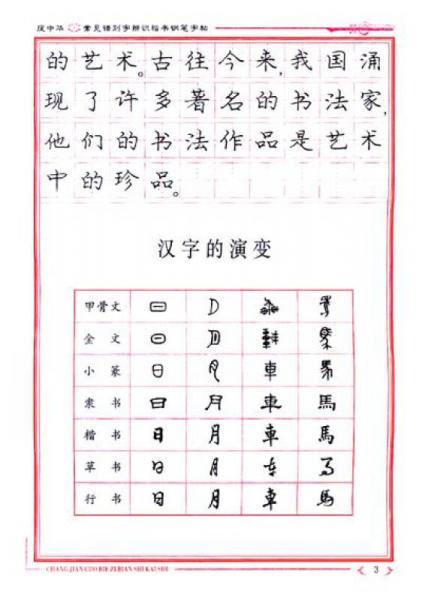 庞中华 常见错别字辨识楷书钢笔字帖
的艺术。古往今来,我国涌
现了许多著名的书法家,
他们的书法作品是艺术
中的珍品。
汉字的演变
甲骨文
金文
小篆 日 月 車
隶书 日 月 車 馬
楷书 日 月 車 馬
草书 日 月 车 马
行书 日 月 車 馬
CHANG JIAN CUO BIE ZI BIAN SHI KAI SHU
3